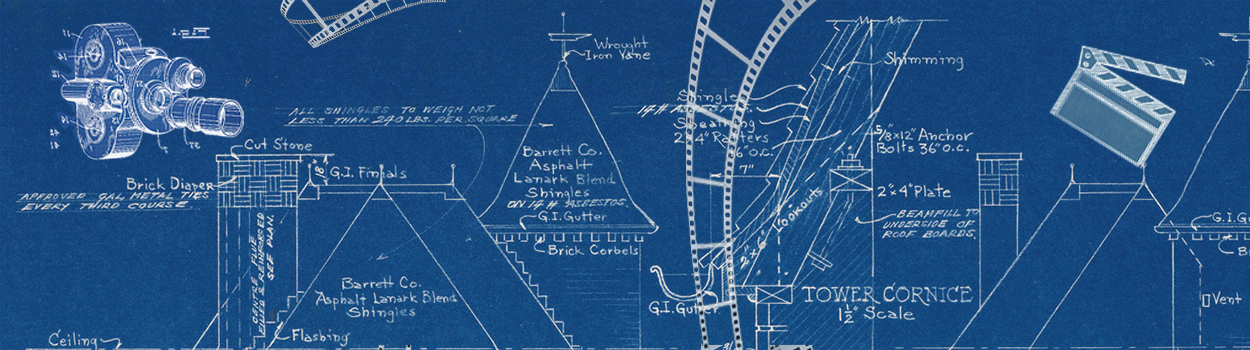 Wrought
Iron Vane
ALL SHINGLES TO WEIGH NOT
LESS THAN 240 LBS. PER SQUARE
Cut Stone
18"
G.I. Finials
Brick Diaper
APPROVED GAL. METAL TIES
EVERY THIRD COURSE
SEE PLAN.
Barrett Co.
Asphalt
Lanark Blend
Shingles
ON 14 # ASBESTOS.
G.I. Gutter
Brick Corbels
Barrett Co.
Asphalt Lanark Blend
Shingles
Flashing
Ceiling
Shimming
Shingles
14# ASBESTOS.
2"x4" Rafters
6" O.C.
7"
5/8"x12" Anchor
Bolts 36" O.C.
2"x4" Plate
Lookouts
2"x6"
BEAMFILL TO
UNDERSIDE OF
ROOF BOARDS.
G.I. Gutter
TOWER CORNICE
1½" Scale
G.G
B
Vent